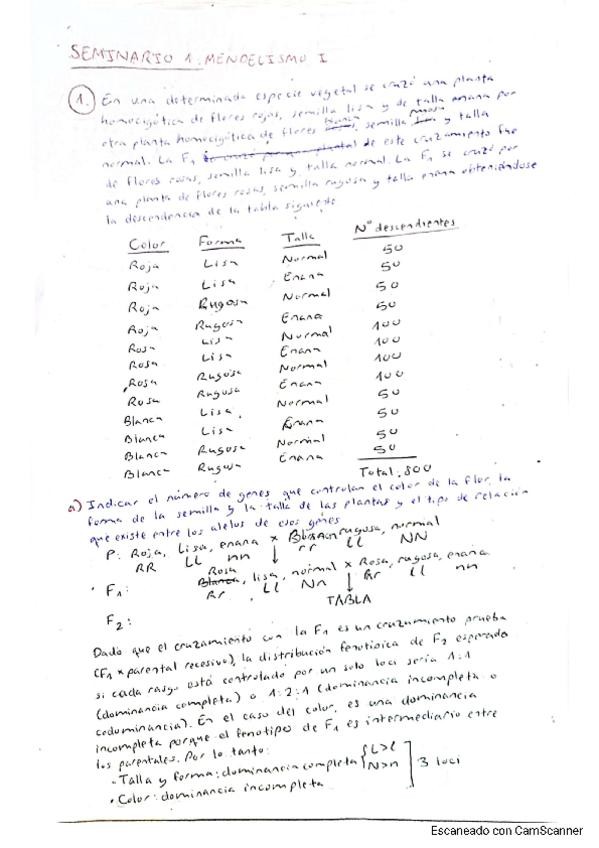 SEMINARIO 1: MENDELISMO I
1. En una determinada especie vegetal se cruzó una planta
homocigótica de flores rojas, semilla lisa y de talla enana por
otra planta homocigótica de flores blancas, semilla rugosa y talla
normal. La F1 de este cruzamiento fue
de flores rosas, semilla lisa y talla normal. La F1 se cruzó por
una planta de flores rosas, semilla rugosa y talla enana obteniéndose
la descendencia de la tabla siguiente
Color Forma Talla Nº descendientes
Roja Lisa Normal 50
Roja Lisa Enana 50
Roja Rugosa Normal 50
Roja Rugosa Enana 50
Rosa Lisa Normal 100
Rosa Lisa Enana 100
Rosa Rugosa Normal 100
Rosa Rugosa Enana 100
Blanca Lisa Normal 50
Blanca Lisa Enana 50
Blanca Rugosa Normal 50
Blanca Rugosa Enana 50
Total: 800
a) Indicar el número de genes que controlan el color de la flor, la
forma de la semilla y la talla de las plantas y el tipo de relación
que existe entre los alelos de esos genes
P: Roja, Lisa, enana x Blanca, rugosa, normal
RR LL nn ↓ rr LL NN
Rosa
F1: Blanca, lisa, normal x Rosa, rugosa, enana
Rr Ll Nn ↓ Rr ll nn
F2: TABLA
Dado que el cruzamiento con la F1 es un cruzamiento prueba
(F1 x parental recesivo), la distribución fenotípica de F2 esperada
si cada rasgo está controlado por un solo loci sería 1:1
(dominancia completa) o 1:2:1 (dominancia incompleta o
codominancia). En el caso del color, es una dominancia
incompleta porque el fenotipo de F1 es intermediario entre
los parentales. Por lo tanto:
· Talla y forma: dominancia completa { L>l N>n
· Color: dominancia incompleta ] 3 loci
Escaneado con CamScanner